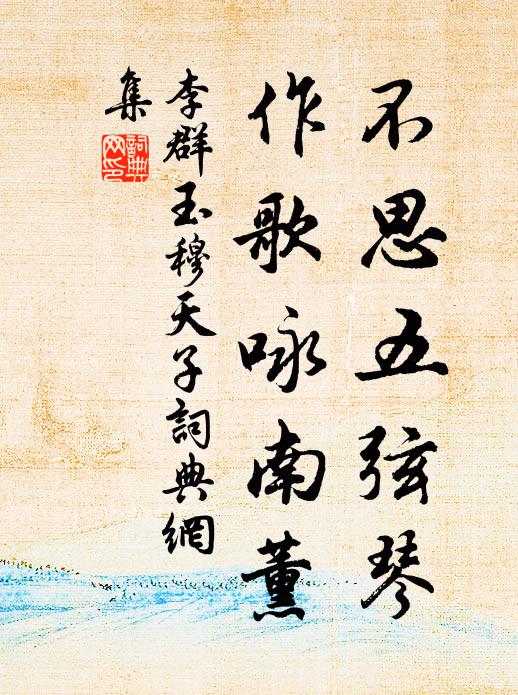 不思五弦琴
作歌咏南薰
李群玉穆天子詞典網
集
詞典
网印